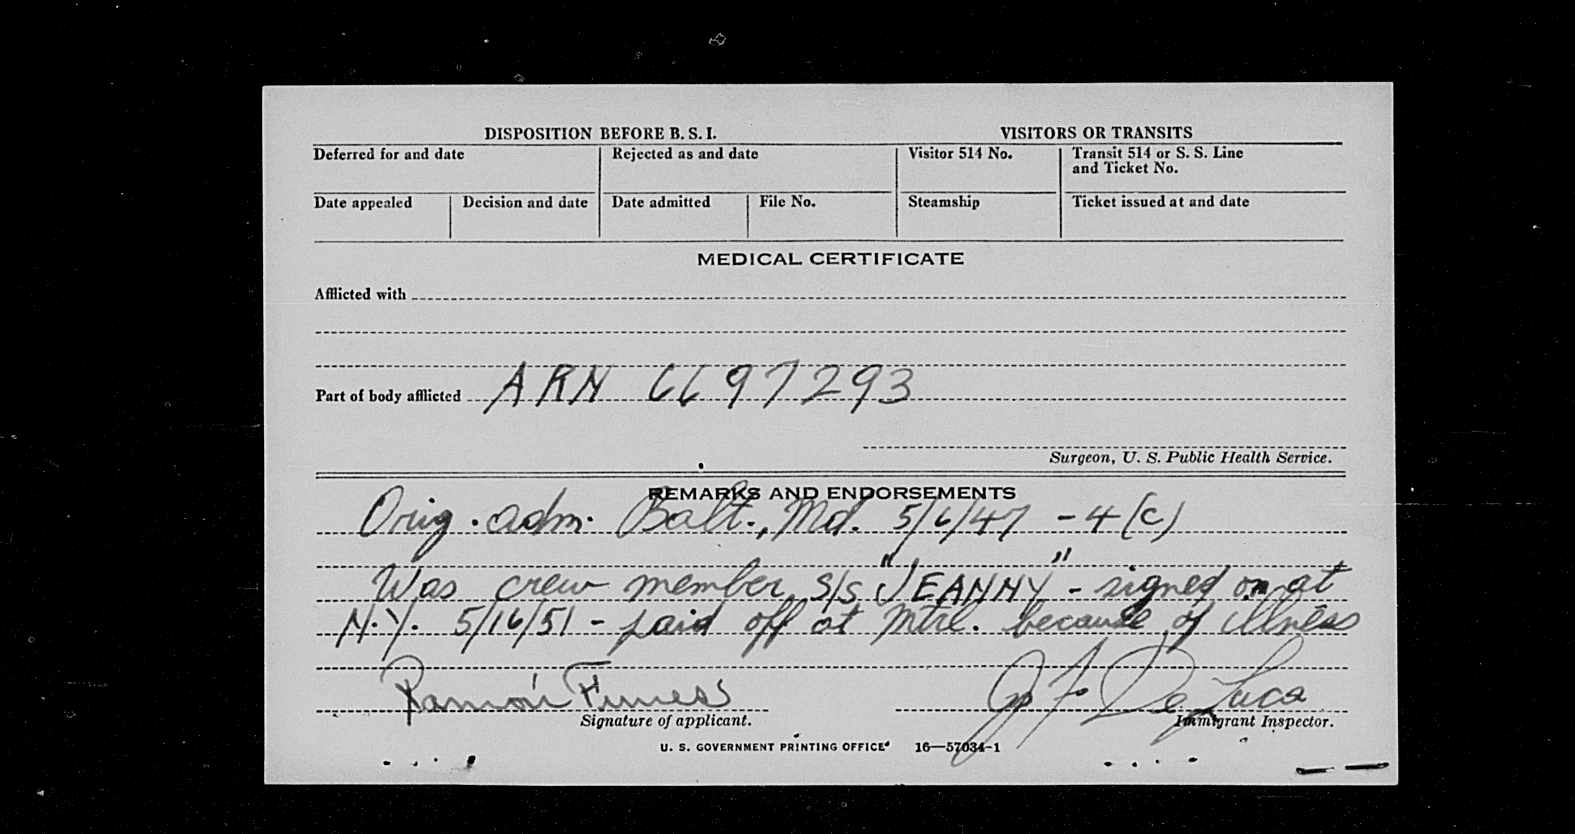 DISPOSITION BEFORE B. S. I.
VISITORS OR TRANSITS
Deferred for and date
Rejected as and date
Visitor 514 No.
Transit 514 or S. S. Line
and Ticket No.
Date appealed
Decision and date
Date admitted
File No.
Steamship
Ticket issued at and date
MEDICAL CERTIFICATE
Afflicted with
Part of body afflicted ARN 6697293
Surgeon, U. S. Public Health Service.
REMARKS AND ENDORSEMENTS
Orig. adm. Balt., Md. 5/6/47 - 4(c)
Was crew member S/S "JEANNY" - signed on at
N.Y. 5/16/51 - paid off at Mtrl. because of illness
Ramón Funess
De Luca
Signature of applicant.
Immigrant Inspector.
U. S. GOVERNMENT PRINTING OFFICE 16—57034-1